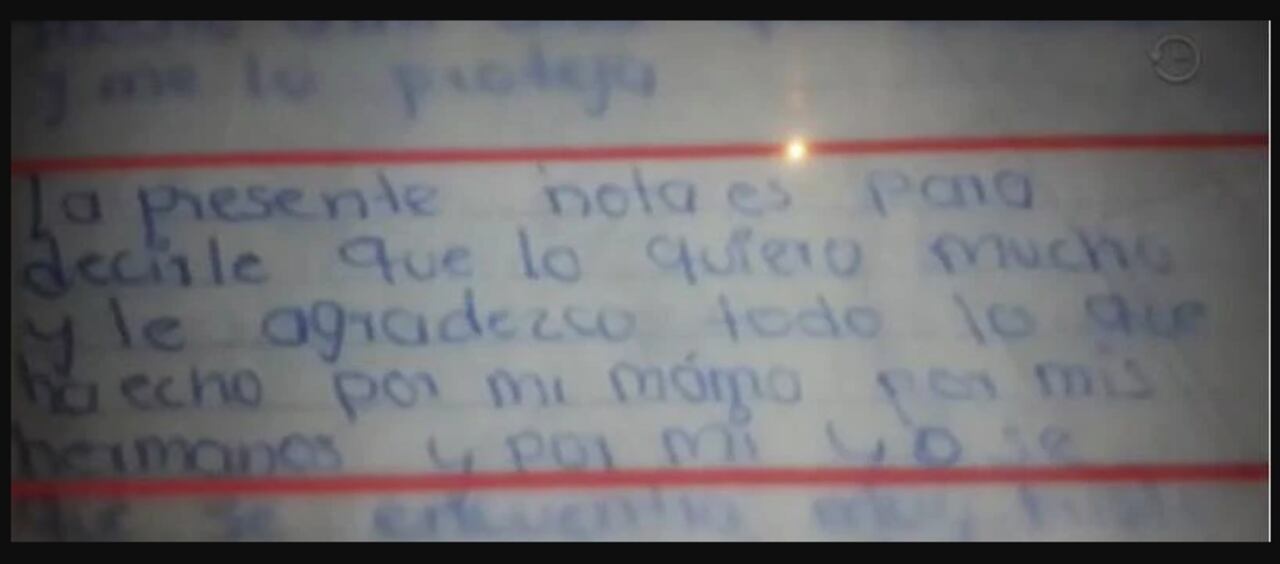 y me lo proteja
La presente nota es para
decirle que lo quiero mucho
y le agradezco todo lo que
ha echo por mi mámá por mis
hermanos y por mi yo se
que se encuentra muy